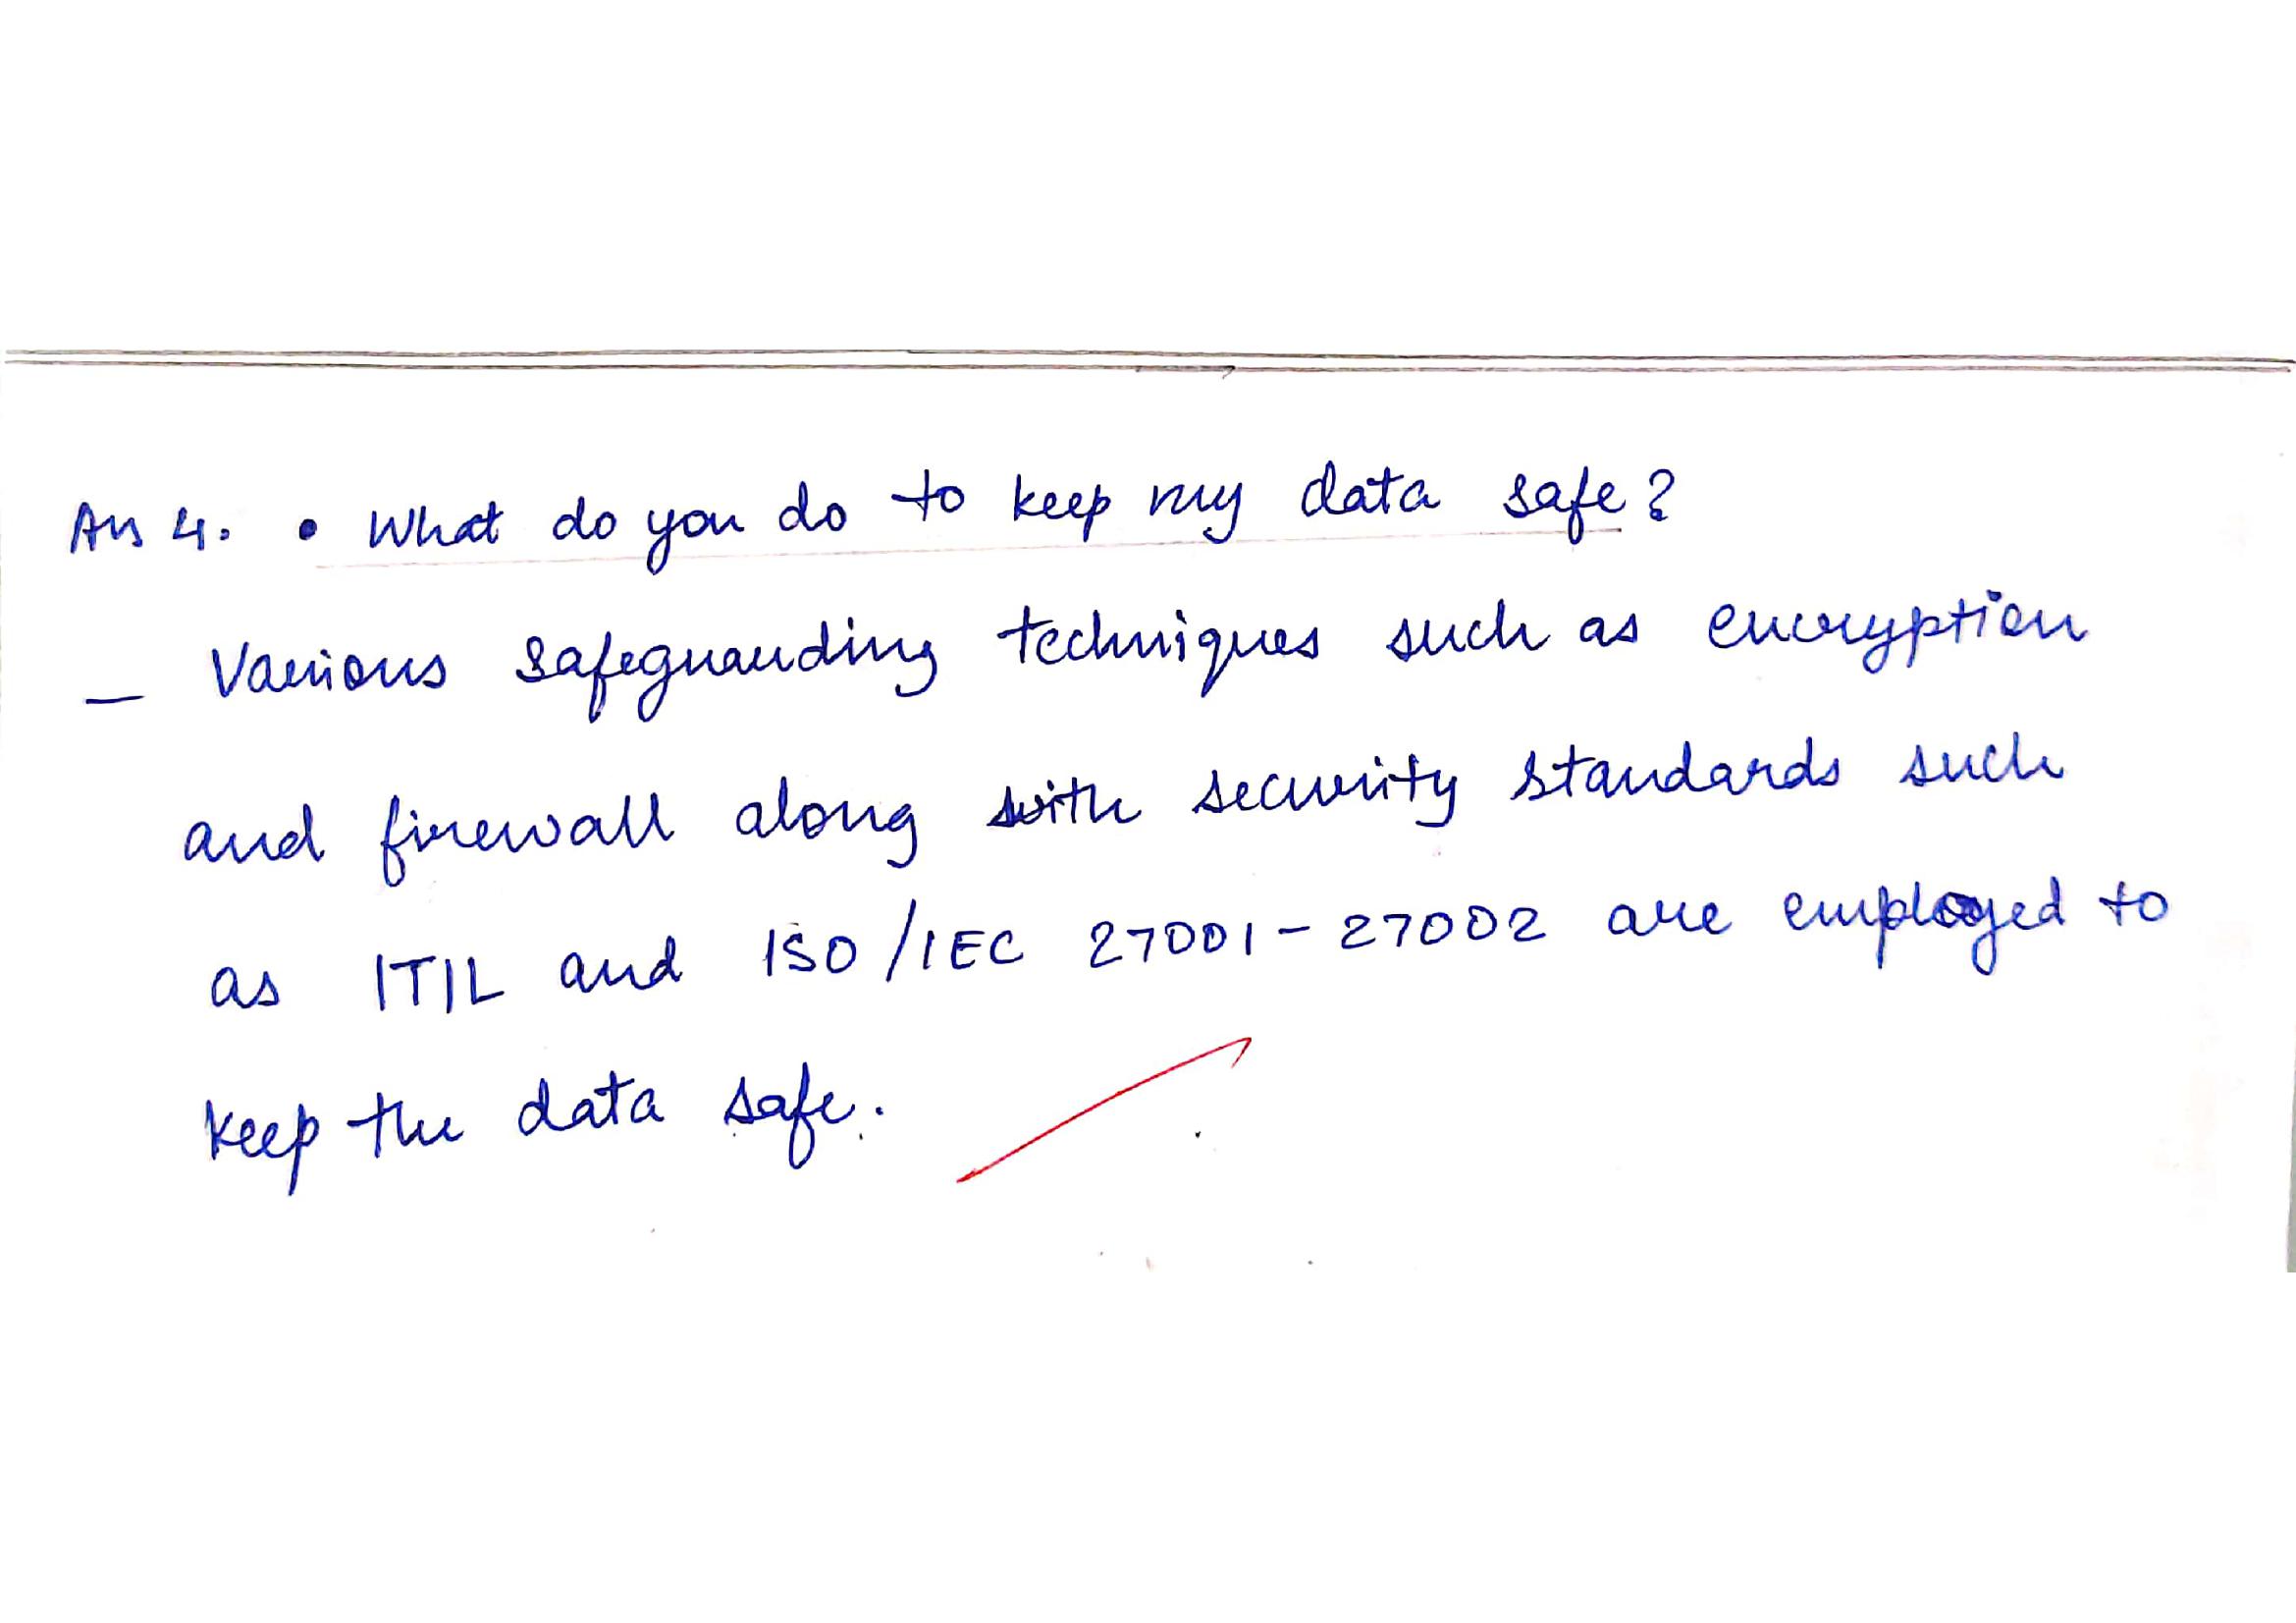 Ans 4. • What do you do to keep my data safe?
– Various safeguarding techniques such as encryption
and firewall along with security standards such
as ITIL and ISO/IEC 27001-27002 are employed to
keep the data safe.